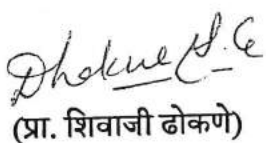 Dhokne S. G
(प्रा. शिवाजी ढोकणे)